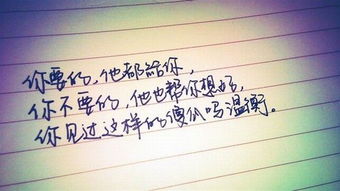 你要的，他都给你，
你不要的，他也帮你想好，
你见过这样的傻瓜吗温衡。